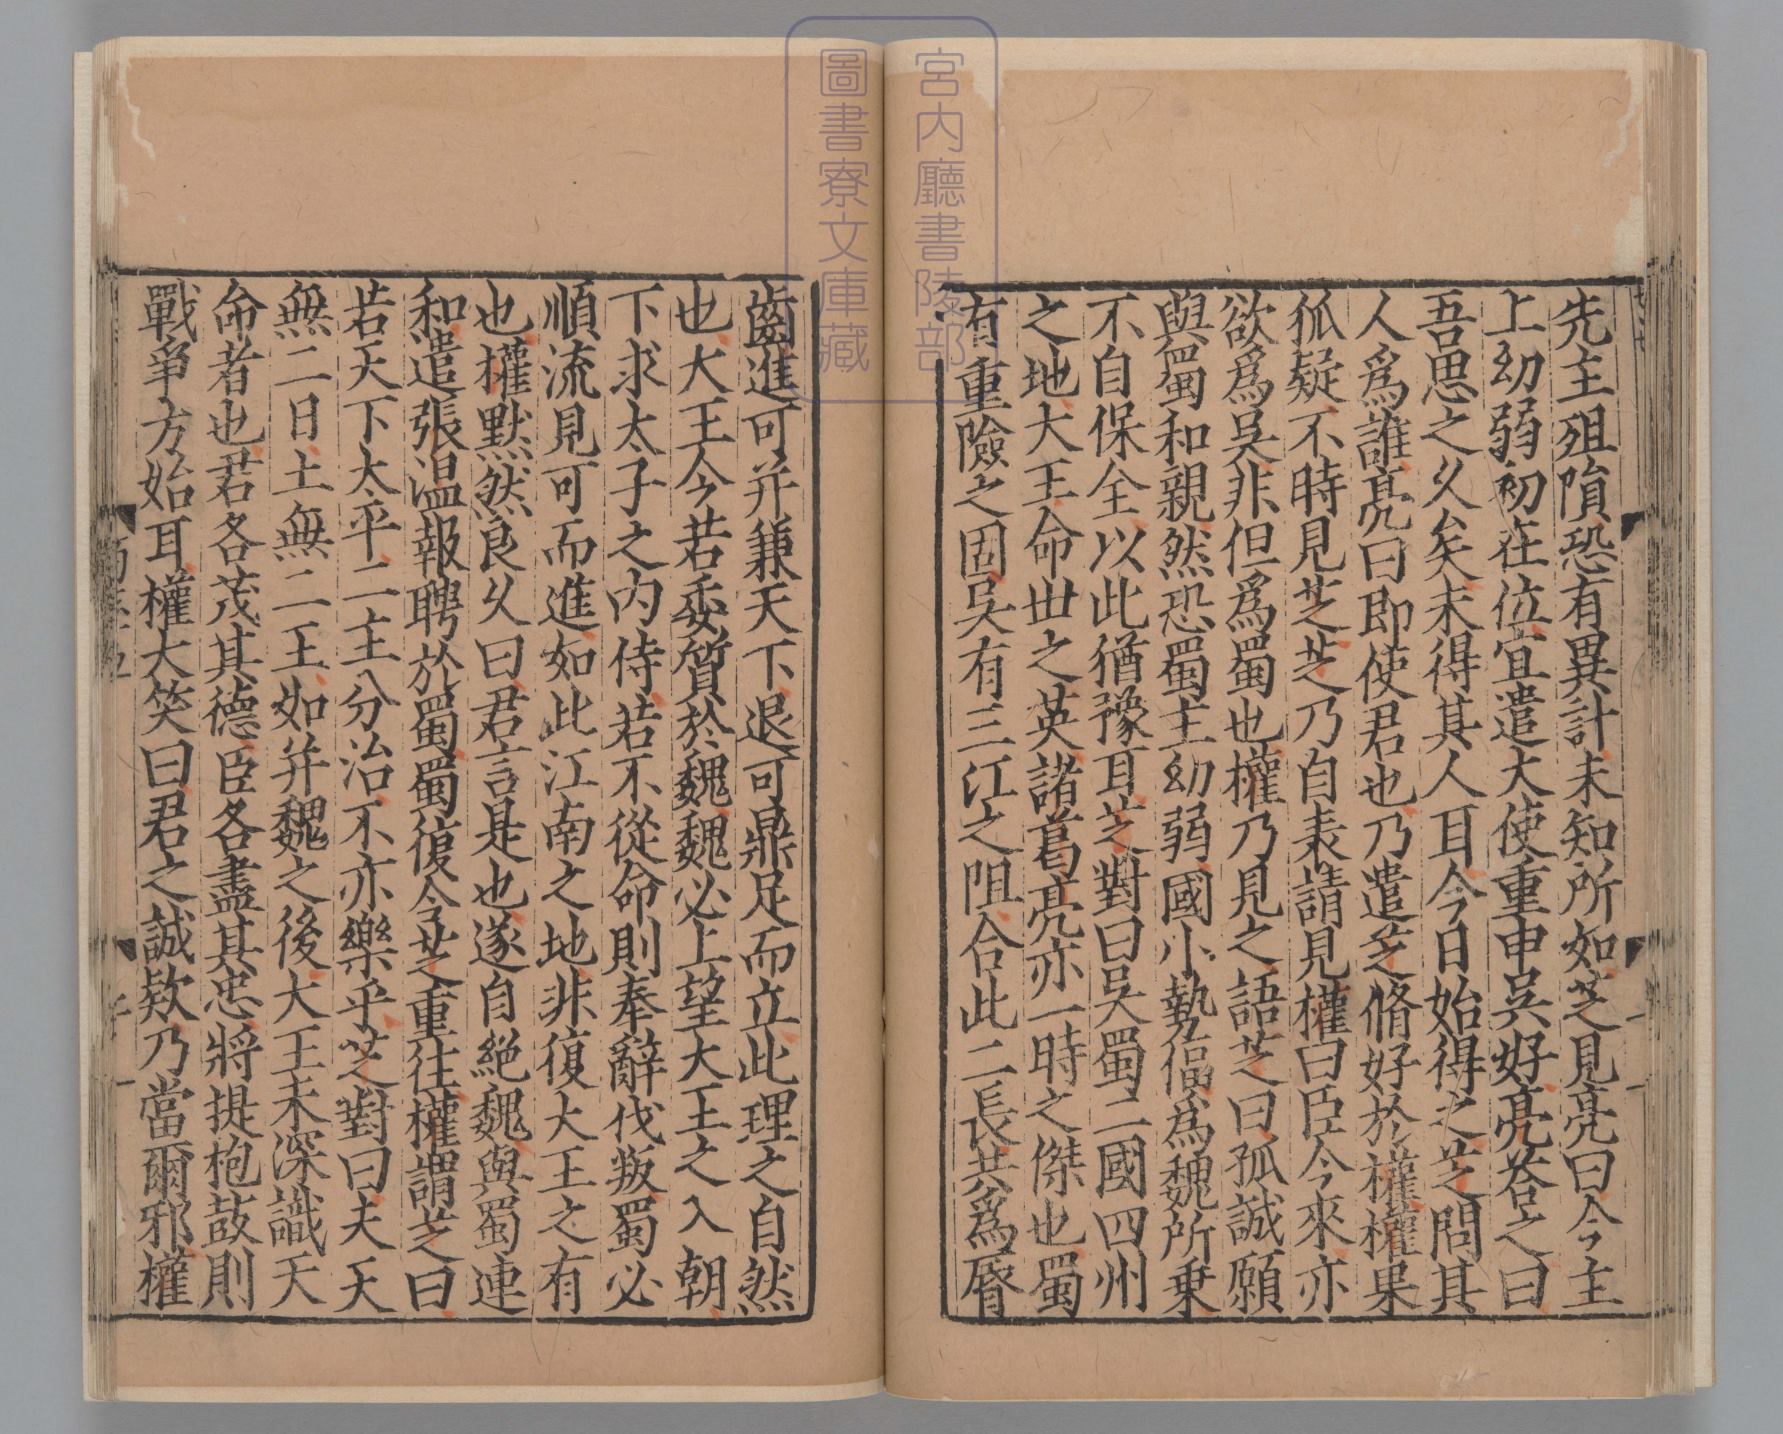 先主殂隕恐有異計未知所如芝見亮曰今主
上幼弱初在位宜遣大使重申吳好亮荅之曰
吾思之久矣未得其人耳今日始得之芝問其
人爲誰亮曰即使君也乃遣芝脩好於權權果
狐疑不時見芝芝乃自表請見權曰臣今來亦
欲爲吳非但爲蜀也權乃見之語芝曰孤誠願
與蜀和親然恐蜀主幼弱國小勢偪爲魏所乗
不自保全以此猶豫耳芝對曰吳蜀二國四州
之地大王命世之英諸葛亮亦一時之傑也蜀
有重險之固吳有三江之阻合此二長共爲脣
齒進可并兼天下退可鼎足而立此理之自然
也大王今若委質於魏魏必上望大王之入朝
下求太子之内侍若不從命則奉辭伐叛蜀必
順流見可而進如此江南之地非復大王之有
也權默然良久曰君言是也遂自絶魏與蜀連
和遣張温報聘於蜀蜀復令芝重往權謂芝曰
若天下太平二主分治不亦樂乎芝對曰夫天
無二日土無二王如并魏之後大王未深識天
命者也君各茂其德臣各盡其忠將提枹鼓則
戰爭方始耳權大笑曰君之誠欵乃當爾邪權
宮内廳書陵部
圖書寮文庫藏